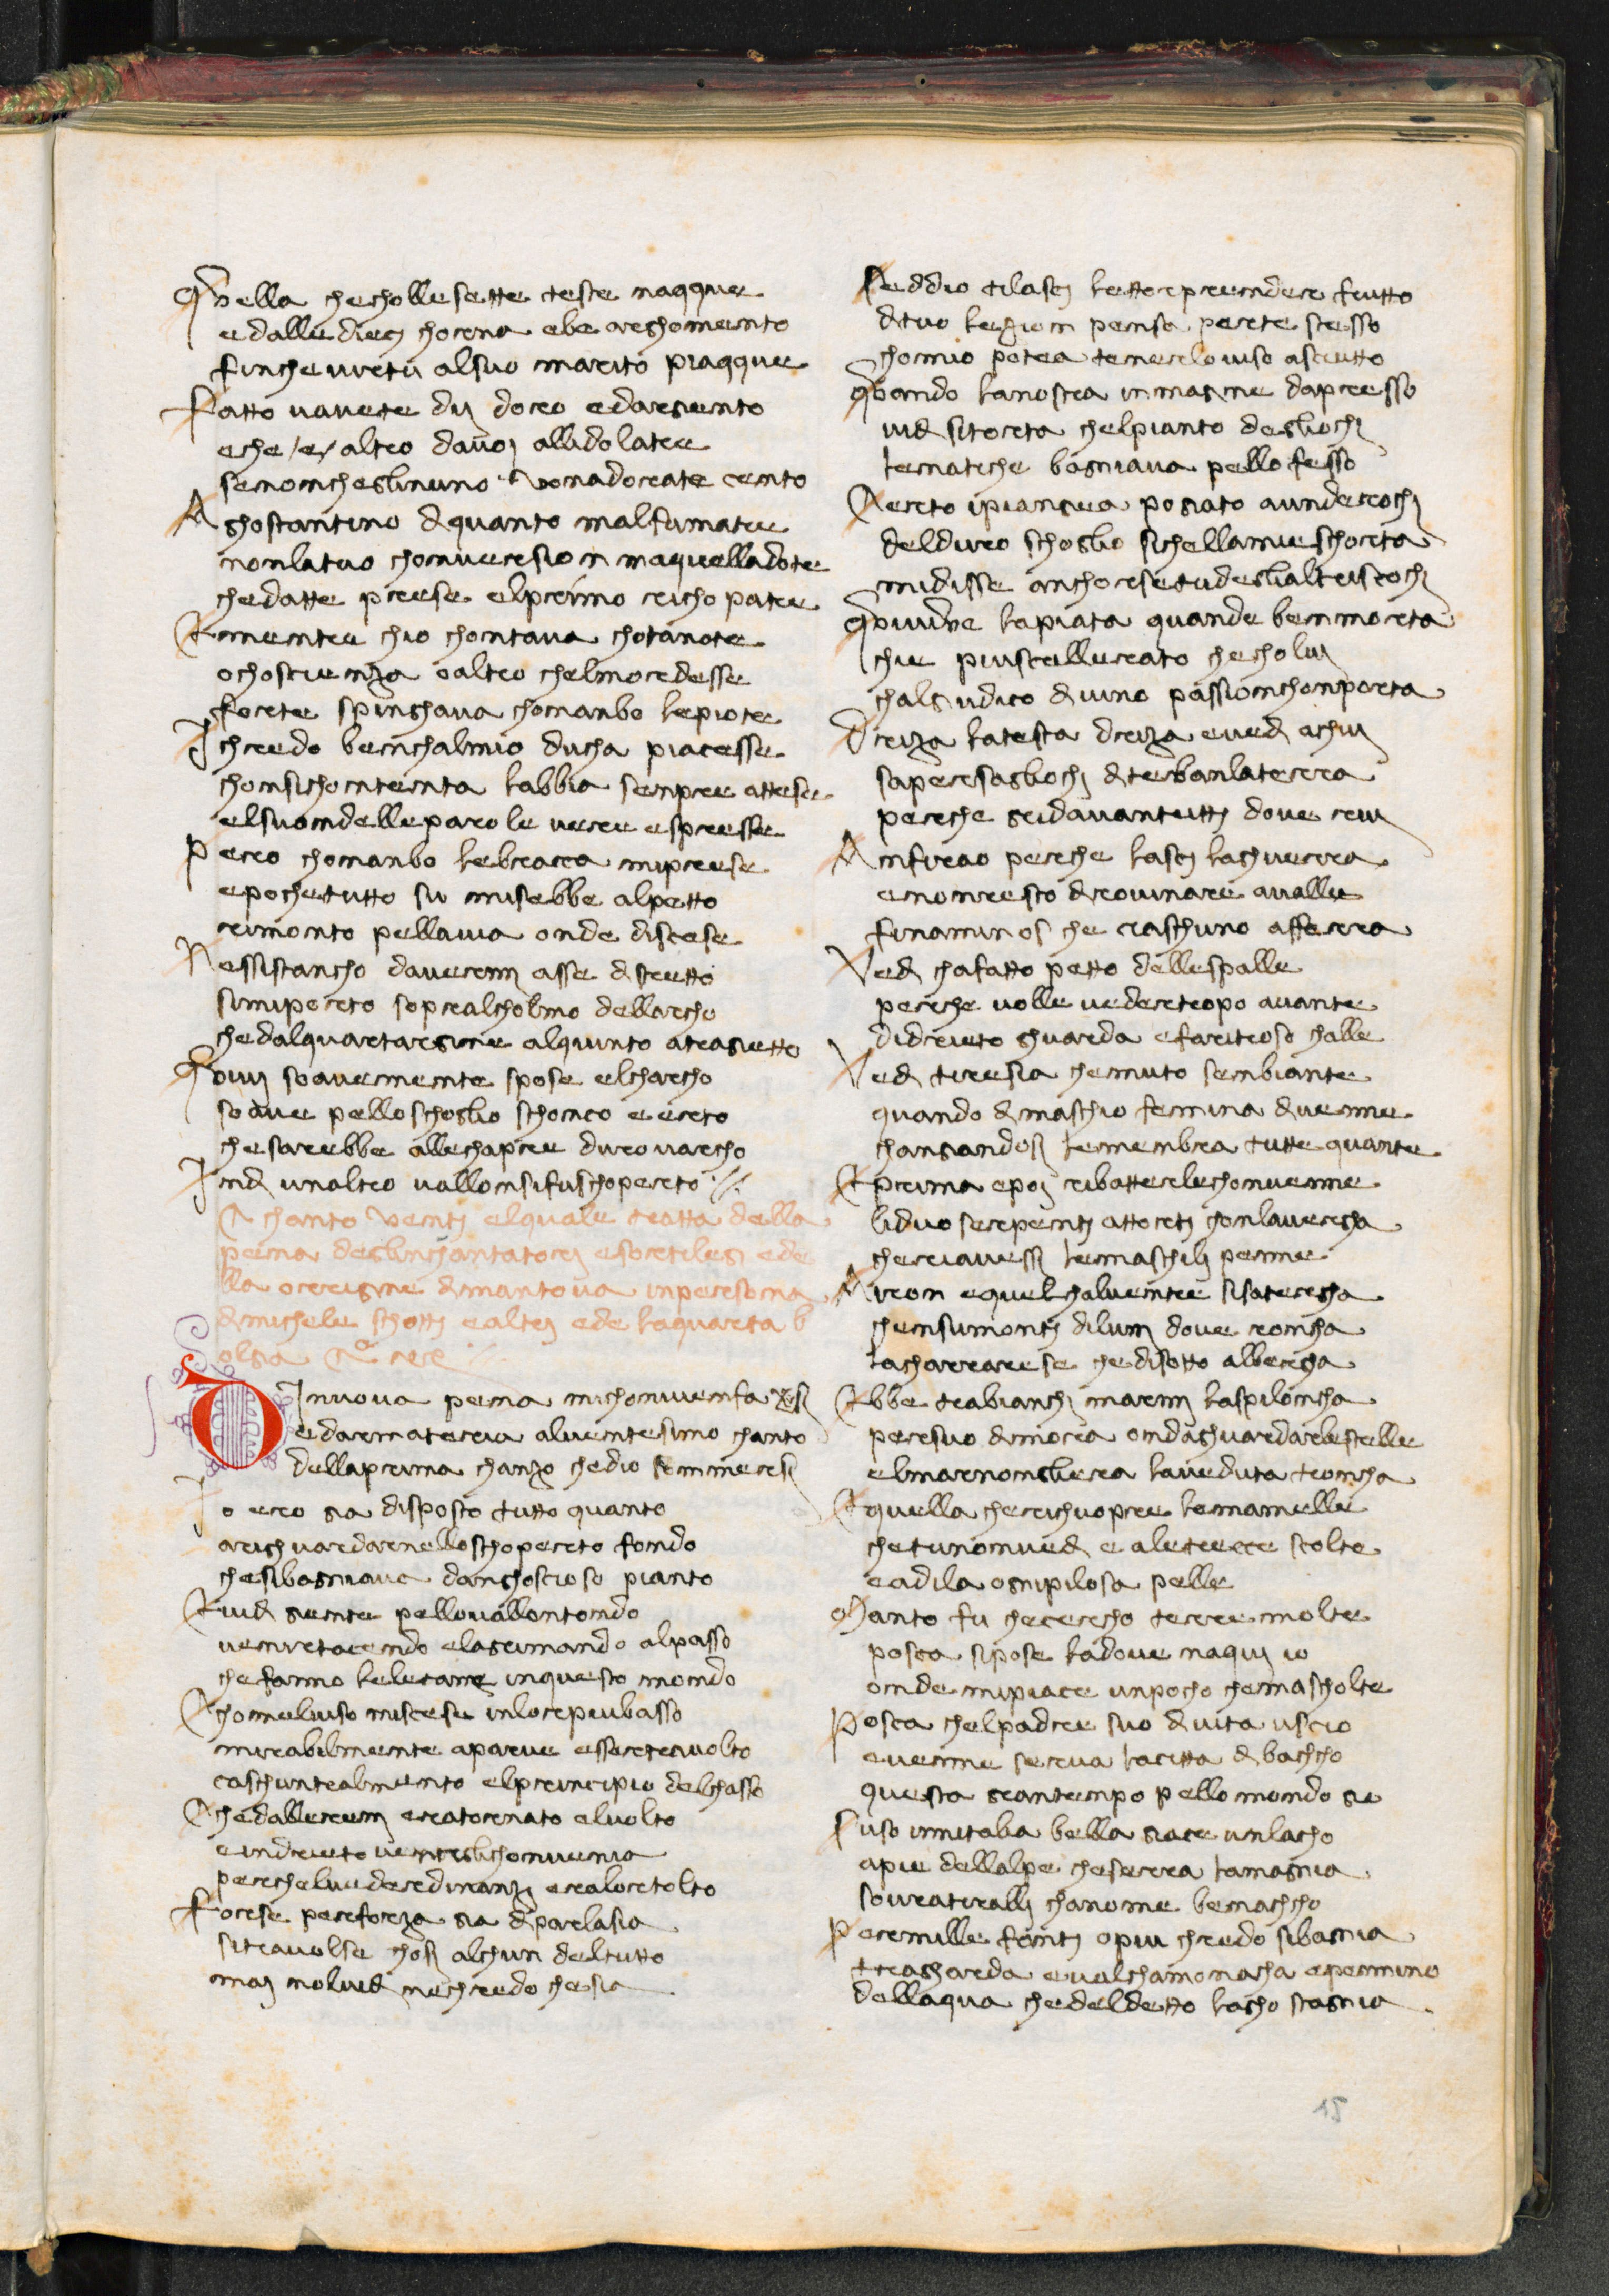 Quella checholle sette teste nacqque
e dalle dieci chorna ebe arghomento
finche virtu alsuo marito piacqque
Fatto vavete dii doro edargiento
eche /e/ altro davoi allidolatre
senonchegliuno 7 vonadorate cento
A ghostantino di quanto malfumatre
nonlatuo chonversion maquelladote
chedatte prese elprimo riccho patre
E mentre chio chontava chotanote
o choscienza oaltro chelmordesse
forte spinghava chomanbo lepiote
I chredo benchalmio ducha piacesse
chonsichontenta labbia senpre attese
elsuondelle parole vere espresse
Pero chomanbo lebraccia miprese
epochetutto su misebbe alpetto
rimonto pellavia onde discese
Nessistancho davermi asse distretto
simiporto sopralcholmo dellarcho
chedalquartargine alquinto atragietto
Quivi soavemente spose elcharcho
soave pelloschoglio schoncio eerto
chesarebbe allechapre duro varcho
Indi unaltro vallonsifuschoperto
Chanto venti elquale tratta della
pena deglinchantatori esortilegi ede
lla origine dimantova inpersona
dimichele schotti ealtri ede laquarta b
olgia
DInuova pena michonvienfa versi
edarmateria alventesimo chanto
dellaprima chanzo chedio sommersi
Io ero gia disposto tutto quanto
arichuardarnello schoperto fondo
chesibagniava danghoscioso pianto
E vidi gente pellovallontondo
veniretacendo elagrimando alpasso
chefanno leletane inquesto mondo
Chomelviso miscese inlorpiubasso
mirabilmente aparve essertravolto
caschuntralmento elprincipio delchasso
Chedallereni eratornato elvolto
eindrieto venirglichonvenia
perchelvederdinanzi eraloretolto
Forse perforza gia diparlasia
sitravolse chosi alchun deltutto
mai nolvidi nechredo chesia
Seddio tilasci lettorprendere frutto
dituo lezion pensa perte stesso
chomio potea tenerelo viso asciutto
Quando lanostra inmagine dapresso
vidi sitorta chelpianto degliochi
lenatiche bagniava pello fesso
Certo ipiangea pogiato aunderochi
delduro schoglio sichellamieschorta
midisse anchorsetudeglialtrisciochi
Quivive lapiata quande benmorta
chie piuscellerato checholui
chalgiudico divino passionchonporta
Driza latesta driza evedi achui
sapersagliochi ditebanlaterra
perche gridavantutti dove rui
Anfirao perche lasci laghuerra
enonresto dirovinare avalle
finaminos che ciaschuno afferra
Vedi chafatto petto dellespalle
perche volle vedertropo avante
didrieto ghuarda efaritroso challe
Vedi tiresia chemuto senbiante
quando dimaschio femina divenne
changiandosi lemembra tutte quante
E prima epoi ribatterlechonvenne
liduo serpenti attorti chonlavergha
cheriavessi lemaschili penne
Aron equelchalventre sisatergha
chensumonti diluni dove roncha
lacharrarese chedisotto albergha
Ebbe trabianchi marmi laspiloncha
persuo dimora ondaghuardarlestelle
elmarnonglera laveduta troncha
E quella cherichuopre lemamelle
chetunonvedi e alletrecce sciolte
eadila ognipilosa pelle
Manto fu checercho terre molte
poscia sipose ladove naqui io
onde mipiace unpocho chemascholte
Poscia chelpadre suo divita uscio
evenne serva lacitta di bachcho
questa grantenpo pello mondo gio
Suso innitalia bella giace unlacho
apie dellalpe cheserra lamagnia
sovratiralli chanome benachcho
Permille fonti opiu chredo sibagnia
tragharda evalchamonacha epennino
dellaqua chedeldetto lacho stagnia
15